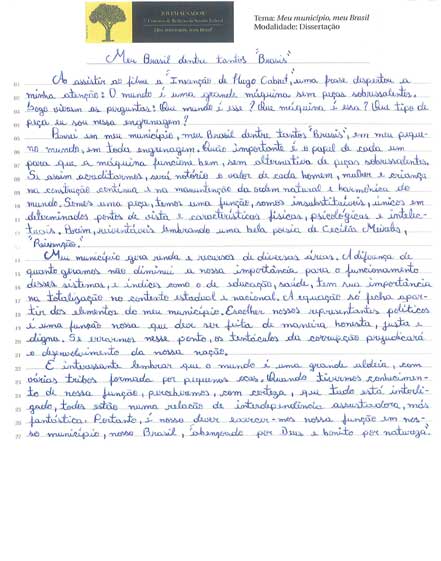 JOVEM SENADOR
Concurso de Redação do Senado Federal
Meu município, meu Brasil
Tema: Meu município, meu Brasil
Modalidade: Dissertação
Meu Brasil dentre tantos "Brasis"
Ao assistir ao filme a "Invenção de Hugo Cabret", uma frase despertou a
minha atenção: O mundo é uma grande máquina sem peças sobressalentes.
Logo vieram as perguntas: Que mundo é esse? Que máquina é essa? Que tipo de
peça eu sou nessa engrenagem?
Pensei em meu município, meu Brasil dentre tantos "Brasis", em meu peque-
no mundo, em toda engrenagem. Quão importante é o papel de cada um
para que a máquina funcione bem, sem alternativa de peças sobressalentes.
Se assim acreditarmos, será notório o valor de cada homem, mulher e criança
na construção contínua e na manutenção da ordem natural e harmônica do
mundo. Somos uma peça, temos uma função, somos insubstituíveis, únicos em
determinados pontos de vista e características físicas, psicológicas e intelec-
tuais. Porém, reinventáveis lembrando uma bela poesia de Cecília Meireles,
"Reinvenção."
Meu município gera renda e recursos de diversas áreas. A diferença de
quanto geramos não diminui a nossa importância para o funcionamento
desses sistemas, e índices como o de educação, saúde, tem sua importância
na totalização no contexto estadual e nacional. A equação só fecha apar-
tir dos elementos do meu município. Escolher nossos representantes políticos
é uma função nossa que deve ser feita de maneira honesta, justa e
digna. Se errarmos nesse ponto, os tentáculos da corrupção prejudicará
o desenvolvimento da nossa nação.
É interessante lembrar que o mundo é uma grande aldeia, com
várias tribos formada por pequenos ecos. Quando tivermos conhecimen-
to de nossa função, perceberemos, com certeza, que tudo está interli-
gado, todos estão numa relação de interdependência assustadora, mas
fantástica. Portanto, é nosso dever exercer-mos nossa função em nos-
so município, nosso Brasil, "abençoado por Deus e bonito por natureza".